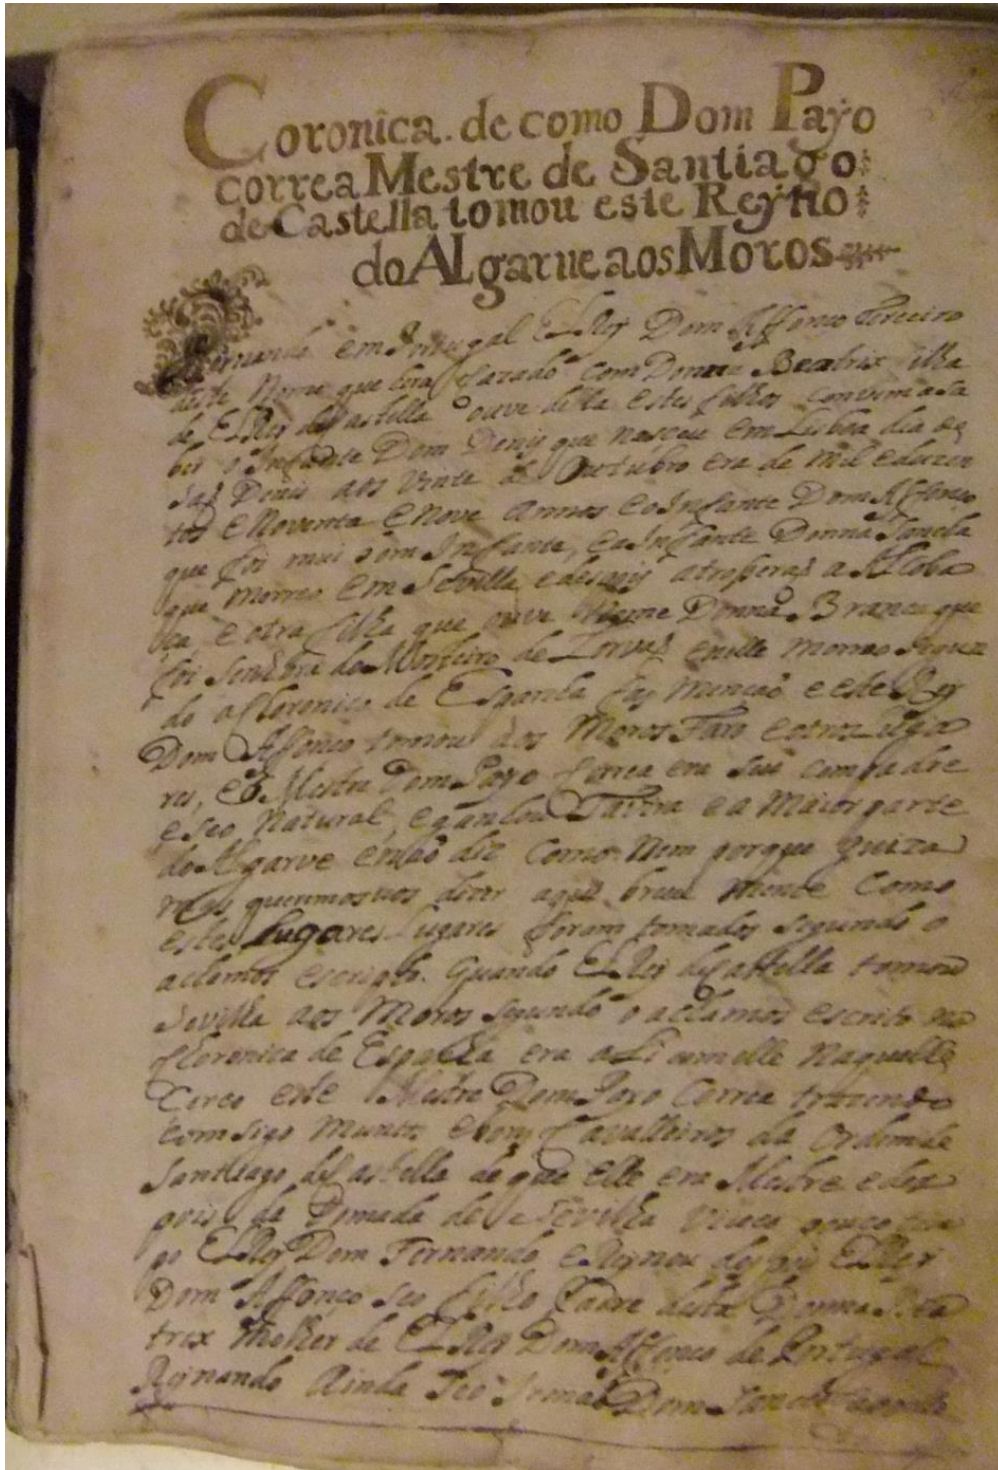 Coronica. de como Dom Payo
correa Mestre de Santiago
de Castella tomou este Reyno
do ALgarue aos Moros
Reynando em Portugal ElRey Dom Affonço Terceiro
deste Nome que hera cazado com Donna Beatrix filha
de ElRey de Castella ouve della estes filhos convem asa
ber o Infante Dom Denis que nasceu em Lisboa dia de
Saõ Denis aos Vinte de Outubro era de mil eduzen
tos e Noventa e Nove annos e o Infante Dom Affonço
que foi mui bom Infante, ea Infante Donna Sancha
que morreo em Sevilla edespois atrouxeraõ a Alcoba
ça, e otra filha que ouve Nome Donna Branca que
foi senhora do Mosteiro de Lorvaõ enelle morreo segun
do a Coronica de Espanha faz mençaõ e este Rey
Dom Affonço tomou aos Moros Faro e otros luga
res, E o Mestre Dom Payo Correa era seu compadre
e seo Natural, e ganhou Tavira e a maior parte
do Algarve enaõ diz como. Nem porque
queremosvos dizer aqui breve mente como
estes lugares Lugares foram tomados segundo o
achamos escripto. Quando ElRey de Castella tomou
Sevilha aos Moros segundo o achamos escrito na
Coronica de Espanha era ali com elle Naquelle
Cerco este Mestre Dom Payo Correa trazendo
comsigo muntos e bons Cavalleiros da Ordem de
Santiago de Castella de que elle era Mestre e des
pois da Tomada de Sevilha Viveo pouco tem
po ElRey Dom Fernando e Reynou despois ElRey
Dom Affonço seo filho Padre desta Donna Bea
trix Molher de ElRey Dom Affonço de Portugal
Reynando Ainda seo Irmaõ Dom Sancho